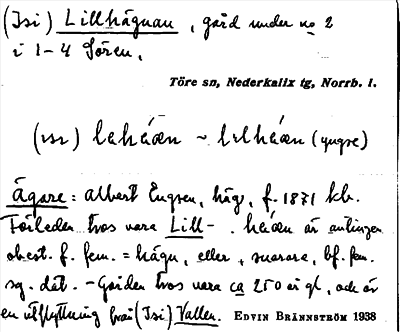 (Isi) Lillhägnan, gård under no 2
i 1-4 Sören.
Töre sn, Nederkalix tg, Norrb. l.
(ısı) lɛháǝn ~ lılháǝn (yngre)
Ägare: Albert Engren, häg, f. 1871 kb.
Förleden tros vara Lill-. háǝn är antingen
obest. f. fem. = hägn, eller, snarare, bf. fem.
sg. dat. - Gården tros vara ca 250 år gl, och är
en utflyttning från (Isi) Vallen. EDVIN BRÄNNSTRÖM 1938